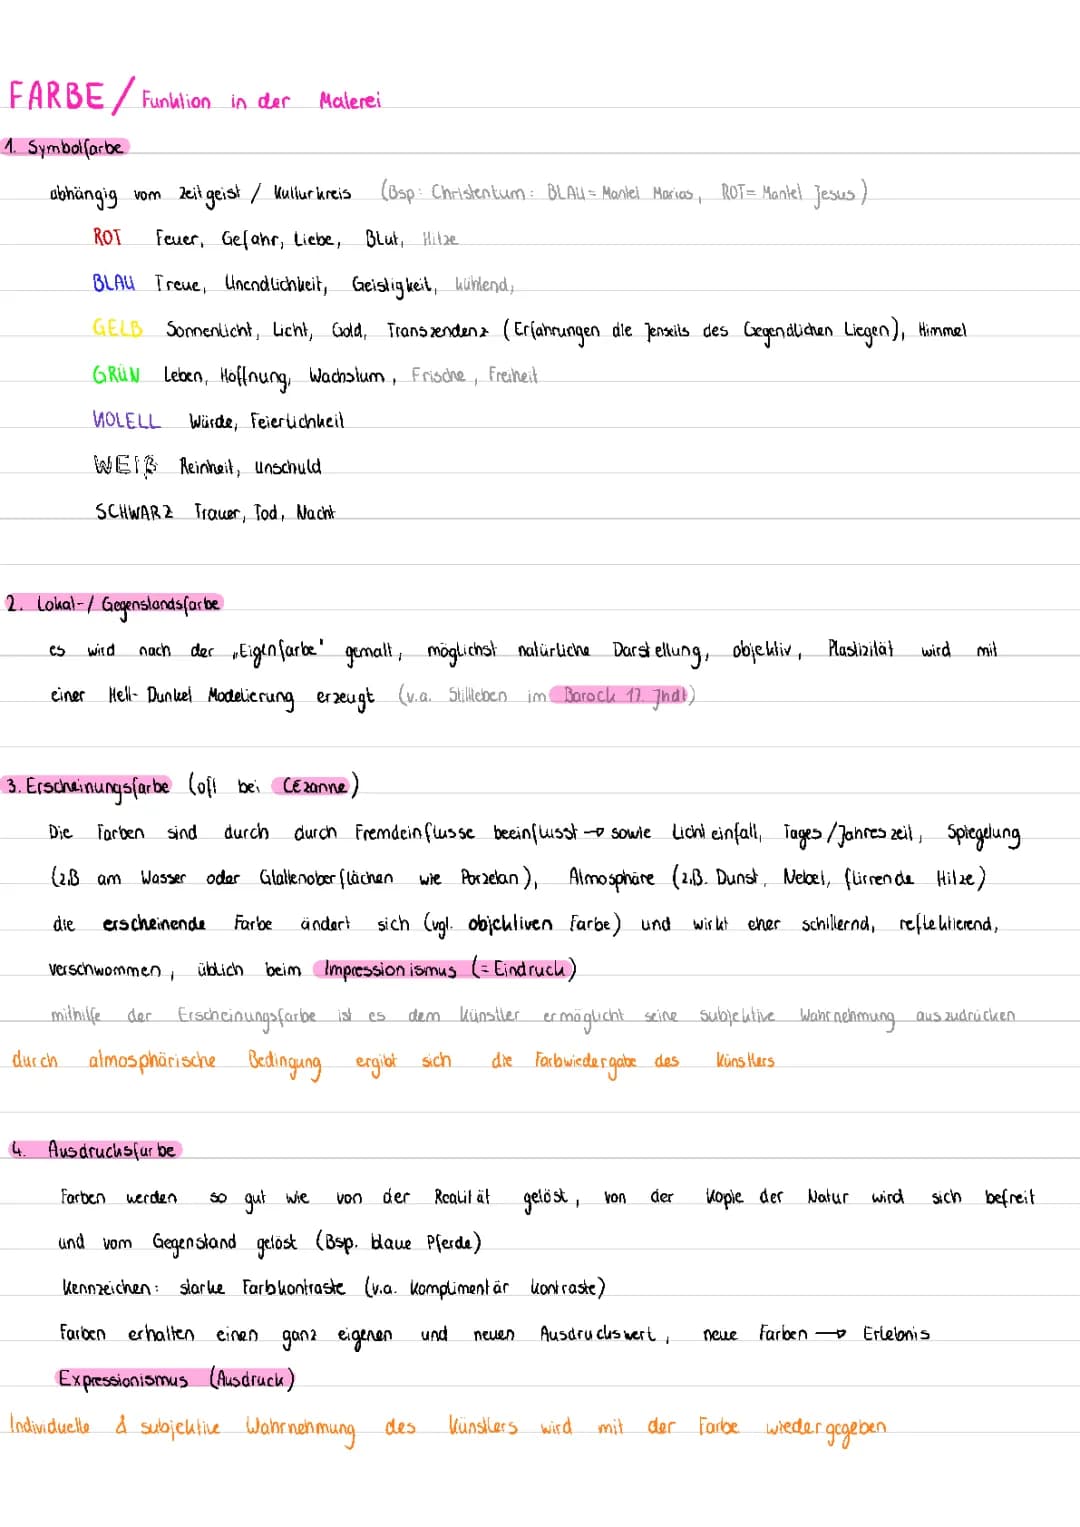 FARBE / Funktion in der Malerei
1. Symbolfarbe
abhängig vom Zeitgeist / Kulturkreis (Bsp: Christentum: BLAU= Mantel Marias, ROT= Mantel Jesus)
ROT Feuer, Gefahr, Liebe, Blut, Hitze
BLAU Treue, Unendlichkeit, Geistigkeit, kühlend,
GELB Sonnenlicht, Licht, Gold, Transzendenz (Erfahrungen die Jenseits des Gegendlichen Liegen), Himmel
GRÜN Leben, Hoffnung, Wachstum, Frische, Freiheit
VIOLELL Würde, Feierlichkeit
WEIß Reinheit, unschuld
SCHWARZ Trauer, Tod, Nacht
2. Lokal-/ Gegenstandsfarbe
es wird nach der „Eigenfarbe" gemalt, möglichst natürliche Darstellung, objektiv, Plastizität wird mit
einer Hell- Dunkel Modelierung erzeugt (v.a. Stillleben im Barock 17. Jhdt)
3. Erscheinungsfarbe (oft bei CEzanne)
Die Farben sind durch durch Fremdeinflusse beeinflusst → sowie Lichteinfall, Tages/Jahreszeit, Spiegelung
(z.B am Wasser oder Glattenoberflächen wie Porzelan), Atmosphäre (z.B. Dunst, Nebel, flirrende Hitze)
die erscheinende Farbe ändert sich (vgl. objektiven Farbe) und wirkt eher schillernd, reflektierend,
verschwommen, üblich beim Impressionismus (= Eindruck)
mithilfe der Erscheinungsfarbe ist es dem Künstler ermöglicht seine subjektive Wahrnehmung auszudrücken
durch atmosphärische Bedingung ergibt sich die Farbwiedergabe des Künstlers
4. Ausdrucksfarbe
Farben werden so gut wie von der Realität gelöst, von der Kopie der Natur wird sich befreit
und vom Gegenstand gelöst (Bsp. blaue Pferde)
Kennzeichen: starke Farbkontraste (v.a. Komplimentär kontraste)
Farben erhalten einen ganz eigenen und neuen Ausdruckswert, neue Farben → Erlebnis
Expressionismus (Ausdruck)
Individuelle & subjektive Wahrnehmung des Künstlers wird mit der Farbe wiedergegeben